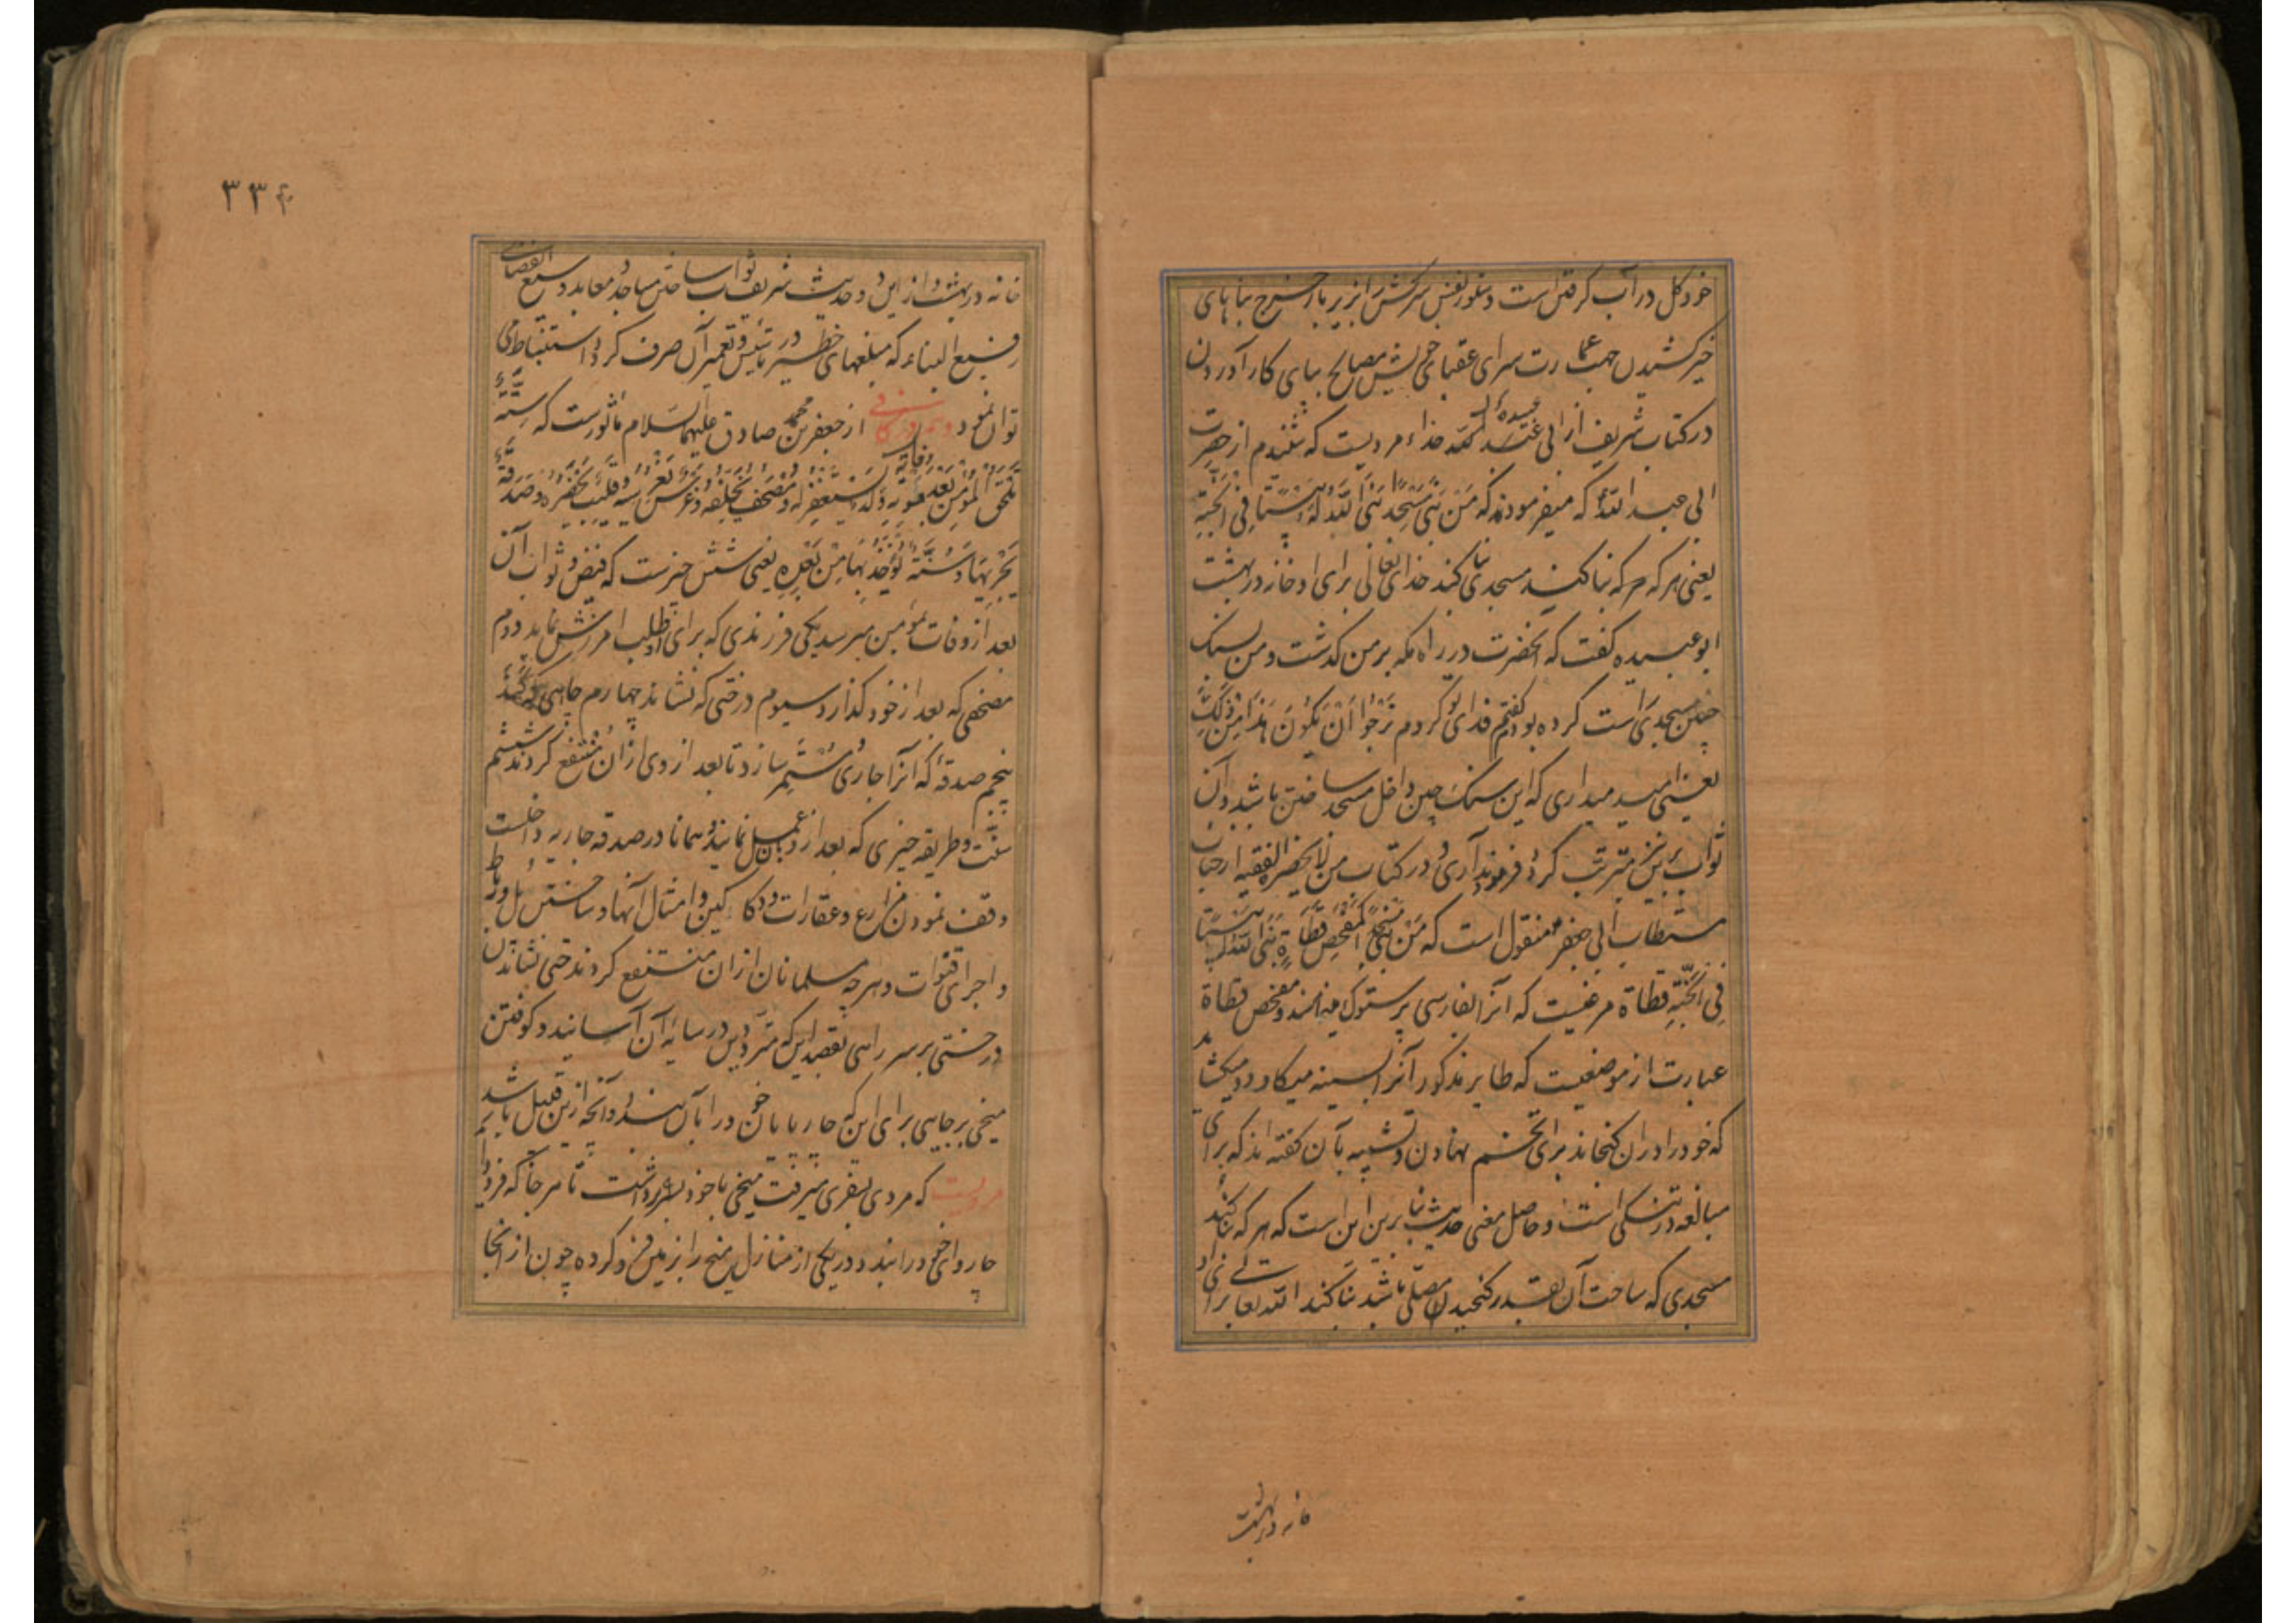 خود گل در آب گرفتن است و ستور نفس سرکش را زیر بار خرج بناهای
خیر کشیدن جهت عمارت سرای عقبای خویش مصالح بپای کار آوردن
در کتاب شریف از ابی عبیده حذاء مرویست که شنیدم از حضرت
ابی عبد الله که میفرمودند که مَنْ بَنَی مَسْجِدًا بَنَی اللّٰهُ لَهُ بَیْتًا فِی الْجَنَّةِ
یعنی هر که هر که بنا کند مسجدی بنا کند خدای تعالی برای او خانه در بهشت
ابو عبیده گفت که آنحضرت در راه مکه بر من گذشت و من بسنگ
چین مسجدی راست کرده بودم گفتم فدای تو گردم نَرْجُوا أَنْ یَکُونَ هَذَا مِنْ ذَلِکَ
یعنی امید میداری که این سنگ چین داخل مسجد ساختن باشد و آن
ثواب برین نیز مترتب گردد فرمودند آری و در کتاب من لا یحضره الفقیه از جناب
مستطاب ابی جعفر منقول است که مَنْ بَنَی مَسْجِدًا کَمَفْحَصِ قَطَاةٍ بَنَی اللّٰهُ لَهُ بَیْتًا
فِی الْجَنَّةِ قطاة مرغیست که آنرا بفارسی پرستوک میخوانند و مفحص قطاة
عبارت از موضعیست که طایر مذکور آنرا بسینه میکاود و میکشاید
که خود را در آن گنجاند برای تخم نهادن و تشبیه بآن گفته اند که برای
مبالغه در تنگی است و حاصل معنی حدیث بنا برین این است که هر که بنا کند
مسجدی که ساحت آن بقدر گنجیدن مصلی باشد بنا کند الله تعالی برای او
خانه در بهشت
٣٣٤
خانه در بهشت و از این دو حدیث شریف ثواب ساختن مساجد و معابد وسیع الفضای
رفیع البناء که مبلغهای خطیر در تاسیس و تعمیر آن صرف گردد استنباط می
توان نمود و هم در کافی از جعفر بن محمد صادق علیهما السلام ماثورست که سِتَّةٌ
تَلْحَقُ الْمُؤْمِنَ بَعْدَ وَفَاتِهِ وَلَدٌ یَسْتَغْفِرُ لَهُ وَ مُصْحَفٌ یُخَلِّفُهُ وَ غَرْسٌ یَغْرِسُهُ وَ قَلِیبٌ یَحْفِرُهُ وَ صَدَقَةٌ
یُجْرِیهَا وَ سُنَّةٌ یُؤْخَذُ بِهَا مِنْ بَعْدِهِ یعنی شش چیزست که فیض و ثواب آن
بعد از وفات بمؤمن میرسد یکی فرزندی که برای او طلب امرزش نماید دوم
مصحفی که بعد از خود گذارد سیوم درختی که نشاند چهارم چاهی که کَنَد
پنجم صدقه که آنرا جاری و مستمر سازد تا بعد از وی از آن منتفع گردند ششم
سنت و طریقه خیری که بعد از و بآن عمل نمایند و همانا در صدقه جاریه داخلست
وقف نمودن مزارع و عقارات و دکاکین و امثال آنها و ساختن پل و رباط
و اجرای قنوات و هر چه مسلمانان از ان منتفع گردند حتی نشاندن
درختی بر سر راهی بقصد این که مترددین در سایه آن آسایند و کوفتن
میخی بر جایی برای این که چارپایان خود را بآن بندند و آنچه ازین قبیل باشد
مرویست که مردی بسفری میرفت میخی با خود برداشت تا هر جا که فرود آید
چاروای خود را بندد و در یکی از منازل میخ را بزمین فرو کرده چون از انجا